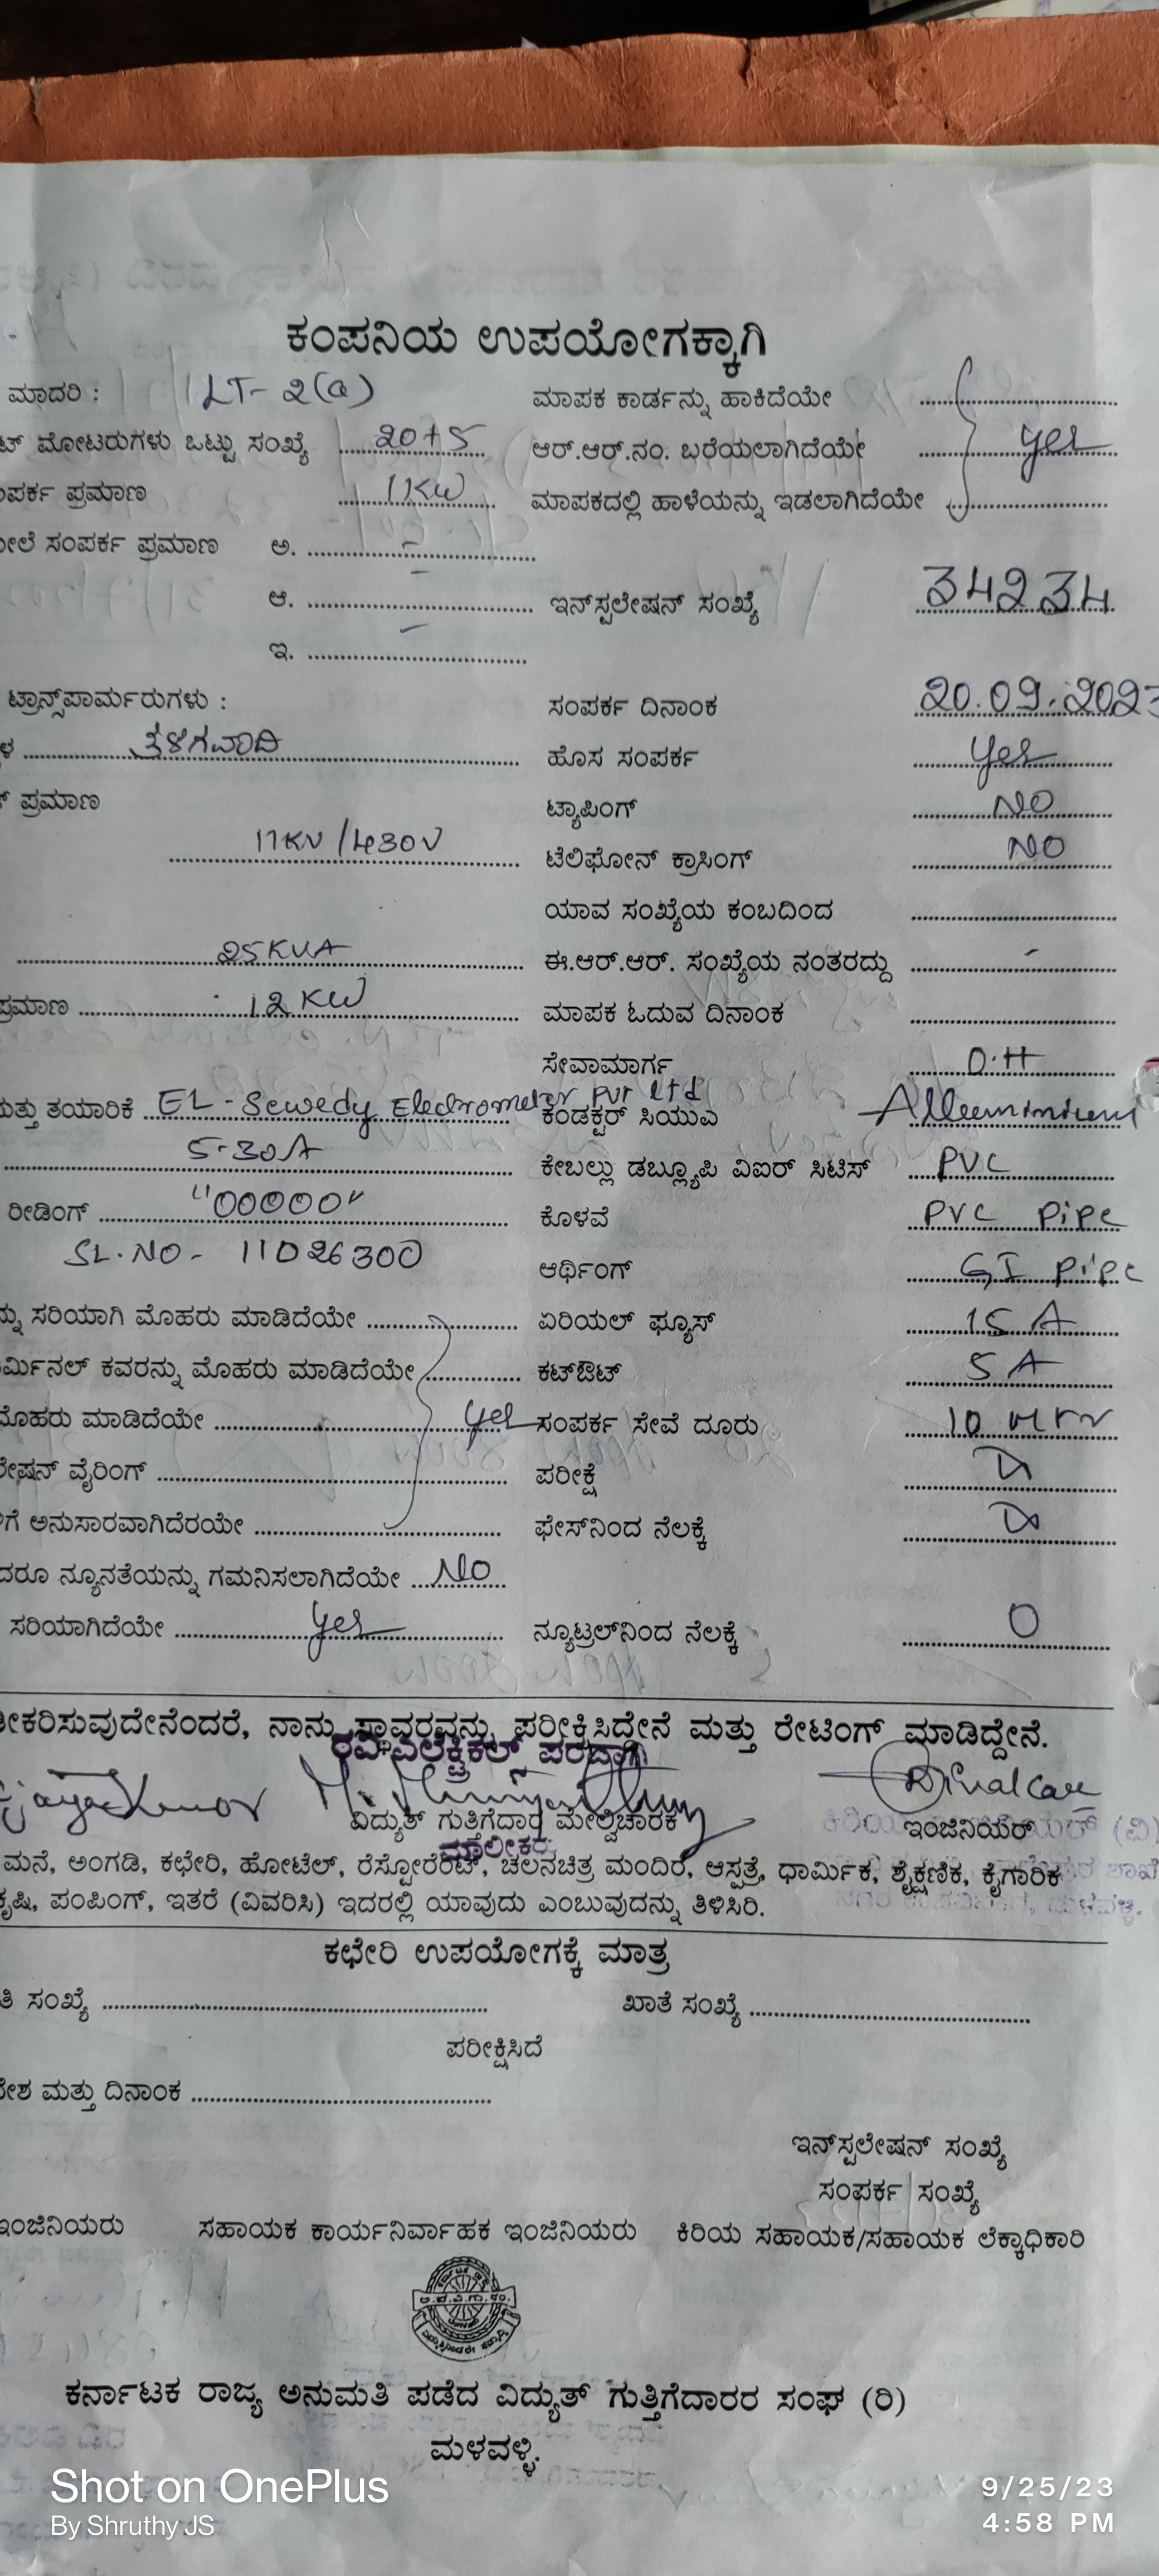 ಕಂಪನಿಯ ಉಪಯೋಗಕ್ಕಾಗಿ
ಮಾದರಿ : LT- 2(a) ಮಾಪಕ ಕಾರ್ಡನ್ನು ಹಾಕಿದೆಯೇ
ಮೋಟರುಗಳು ಒಟ್ಟು ಸಂಖ್ಯೆ 20+5 ಆರ್.ಆರ್.ನಂ. ಬರೆಯಲಾಗಿದೆಯೇ yes
ಪ್ರಮಾಣ 1KW ಮಾಪಕದಲ್ಲಿ ಹಾಳೆಯನ್ನು ಇಡಲಾಗಿದೆಯೇ
ಸಂಪರ್ಕ ಪ್ರಮಾಣ ಅ. -
ಆ. - ಇನ್‌ಸ್ಟಲೇಷನ್ ಸಂಖ್ಯೆ 34234
ಇ. -
ಟ್ರಾನ್ಸ್‌ಪಾರ್ಮರುಗಳು : ಸಂಪರ್ಕ ದಿನಾಂಕ 20.09.2023
ಹೊಸ ಸಂಪರ್ಕ yes
ಪ್ರಮಾಣ ಟ್ಯಾಪಿಂಗ್ NO
11KV/430V ಟೆಲಿಫೋನ್ ಕ್ರಾಸಿಂಗ್ NO
ಯಾವ ಸಂಖ್ಯೆಯ ಕಂಬದಿಂದ
25KVA ಈ.ಆರ್.ಆರ್. ಸಂಖ್ಯೆಯ ನಂತರದ್ದು -
ಪ್ರಮಾಣ 12KW ಮಾಪಕ ಓದುವ ದಿನಾಂಕ
ಸೇವಾಮಾರ್ಗ O.H
ತಯಾರಿಕೆ EL-Sewedy Electrometer Pvt Ltd ಕಂಡಕ್ಟರ್ ಸಿಯುಎ
5-30A ಕೇಬಲ್ಲು ಡಬ್ಲ್ಯೂಪಿ ವಿಐರ್ ಸಿಟಿಸ್ PVC
ರೀಡಿಂಗ್ "00000" ಕೊಳವೆ PVC Pipe
SL.NO- 11026300 ಆರ್ಥಿಂಗ್ GI Pipe
ಸರಿಯಾಗಿ ಮೊಹರು ಮಾಡಿದೆಯೇ ಏರಿಯಲ್ ಫ್ಯೂಸ್ 15 A
ಕವರನ್ನು ಮೊಹರು ಮಾಡಿದೆಯೇ ಕಟ್‌ಔಟ್ 5 A
ಮೊಹರು ಮಾಡಿದೆಯೇ yes ಸಂಪರ್ಕ ಸೇವೆ ದೂರು 10
ವೈರಿಂಗ್ ಪರೀಕ್ಷೆ
ಅನುಸಾರವಾಗಿದೆರಯೇ ಫೇಸ್‌ನಿಂದ ನೆಲಕ್ಕೆ
ನ್ಯೂನತೆಯನ್ನು ಗಮನಿಸಲಾಗಿದೆಯೇ NO
ಸರಿಯಾಗಿದೆಯೇ yes ನ್ಯೂಟ್ರಲ್‌ನಿಂದ ನೆಲಕ್ಕೆ 0
ನಾನು ಸ್ಥಾವರವನ್ನು ಪರೀಕ್ಷಿಸಿದ್ದೇನೆ ಮತ್ತು ರೇಟಿಂಗ್ ಮಾಡಿದ್ದೇನೆ.
ವಿದ್ಯುತ್ ಗುತ್ತಿಗೆದಾರ ಮೇಲ್ವಿಚಾರಕ ಇಂಜಿನಿಯರ್
ಮನೆ, ಅಂಗಡಿ, ಕಛೇರಿ, ಹೋಟೆಲ್, ರೆಸ್ಟೋರೆಂಟ್, ಚಲನಚಿತ್ರ ಮಂದಿರ, ಆಸ್ಪತ್ರೆ, ಧಾರ್ಮಿಕ, ಶೈಕ್ಷಣಿಕ, ಕೈಗಾರಿಕ
ಕೃಷಿ, ಪಂಪಿಂಗ್, ಇತರೆ (ವಿವರಿಸಿ) ಇದರಲ್ಲಿ ಯಾವುದು ಎಂಬುವುದನ್ನು ತಿಳಿಸಿರಿ.
ಕಛೇರಿ ಉಪಯೋಗಕ್ಕೆ ಮಾತ್ರ
ಸಂಖ್ಯೆ ಖಾತೆ ಸಂಖ್ಯೆ
ಪರೀಕ್ಷಿಸಿದೆ
ಮತ್ತು ದಿನಾಂಕ
ಇನ್‌ಸ್ಟಲೇಷನ್ ಸಂಖ್ಯೆ
ಸಂಪರ್ಕ ಸಂಖ್ಯೆ
ಇಂಜಿನಿಯರು ಸಹಾಯಕ ಕಾರ್ಯನಿರ್ವಾಹಕ ಇಂಜಿನಿಯರು ಕಿರಿಯ ಸಹಾಯಕ/ಸಹಾಯಕ ಲೆಕ್ಕಾಧಿಕಾರಿ
ಕರ್ನಾಟಕ ರಾಜ್ಯ ಅನುಮತಿ ಪಡೆದ ವಿದ್ಯುತ್ ಗುತ್ತಿಗೆದಾರರ ಸಂಘ (ರಿ)
ಮಳವಳ್ಳಿ.
Shot on OnePlus
By Shruthy JS
9/25/23
4:58 PM